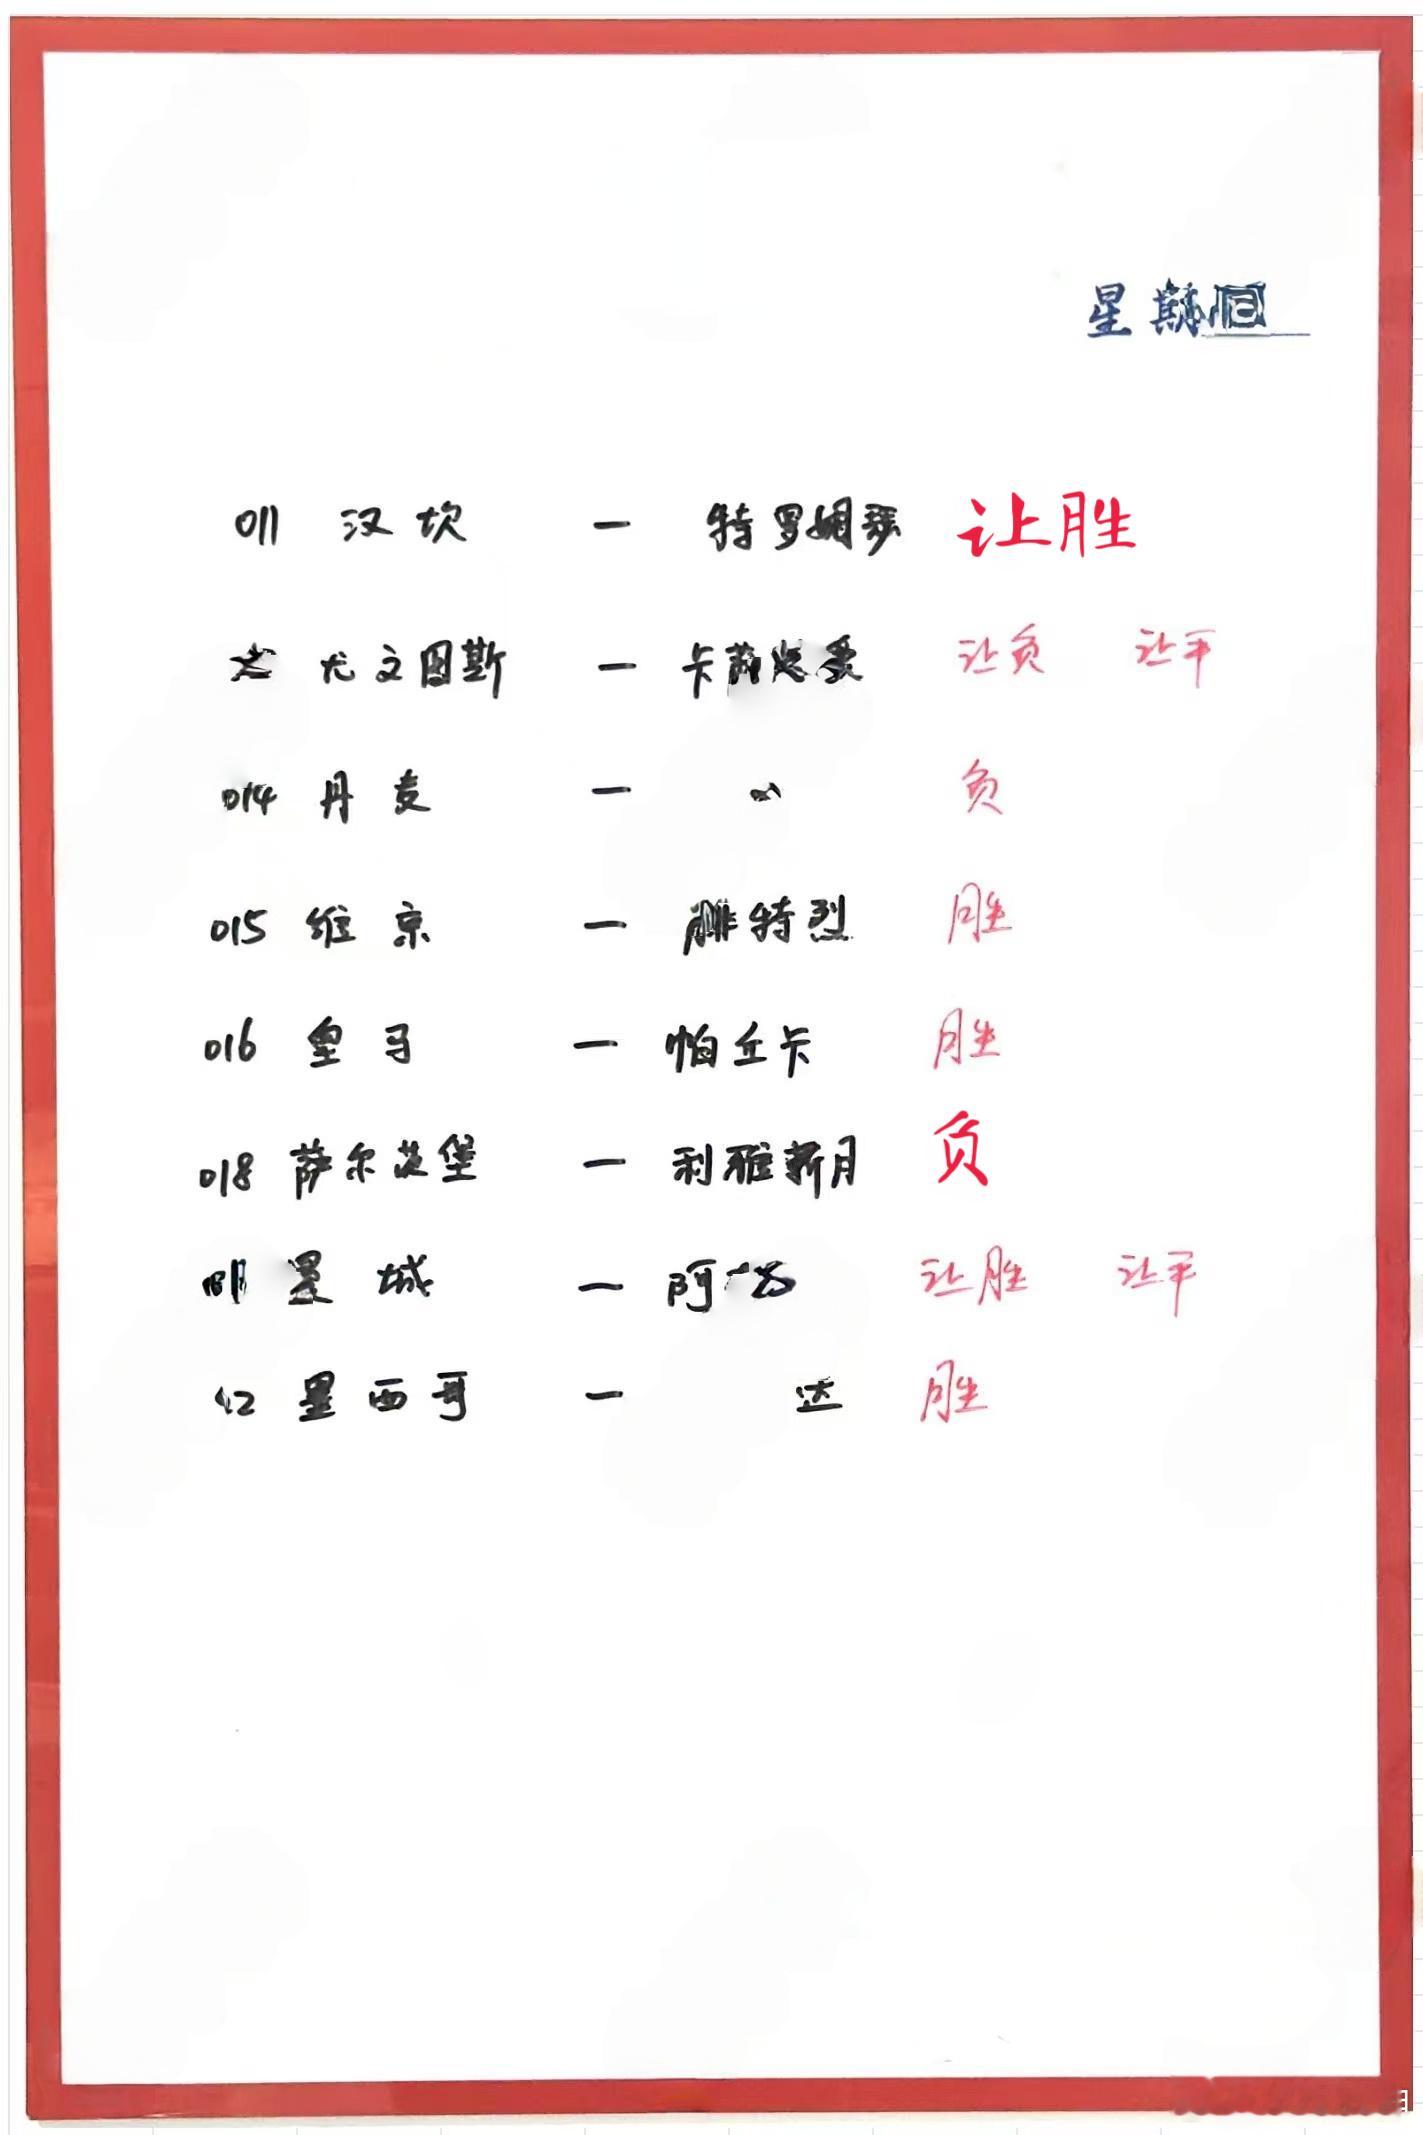 星期日
011 汉坎 — 特罗姆瑟 让胜
尤文图斯 — 卡萨 让负 让平
014 丹麦 — 负
015 维京 — 腓特烈 胜
016 皇马 — 帕丘卡 胜
018 萨尔茨堡 — 利雅新月 负
城 — 阿 让胜 让平
墨西哥 — 达 胜